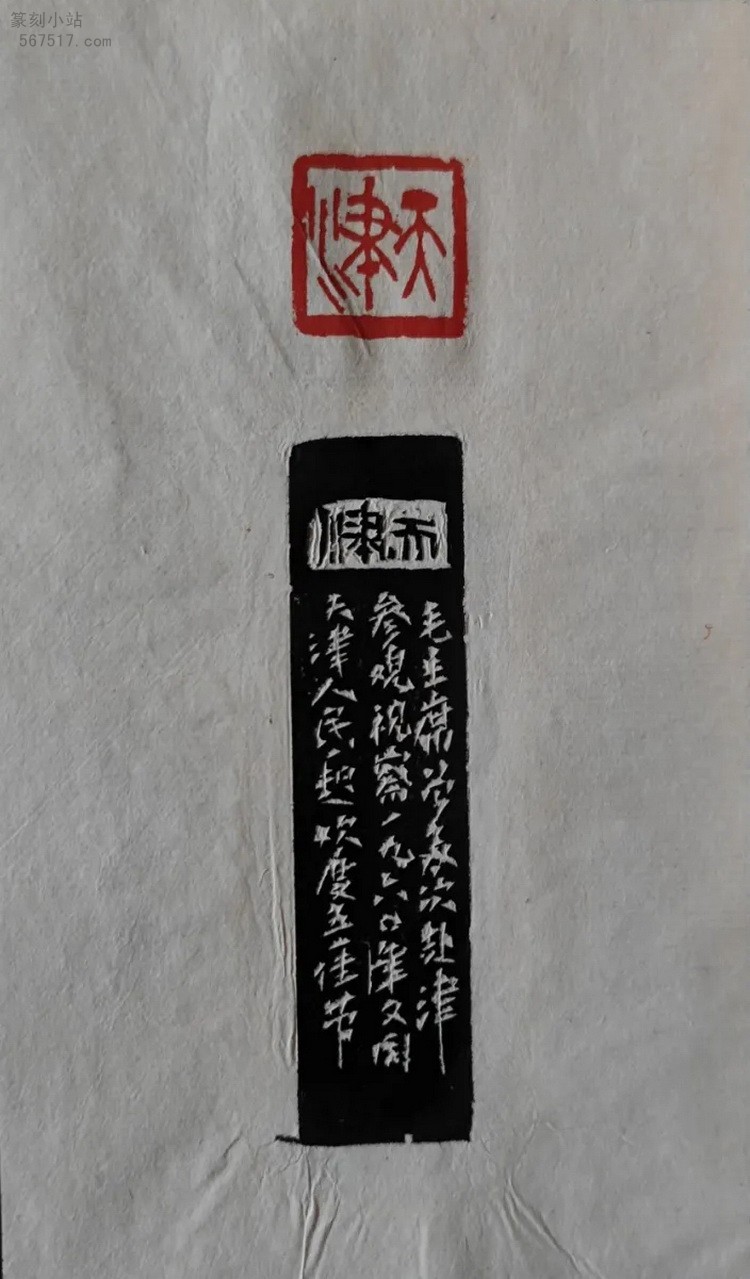 篆刻小站
567517.com
天津
天津
毛主席曾多次赴津
参观视察一九六〇年又同
天津人民一起欢度五一佳节